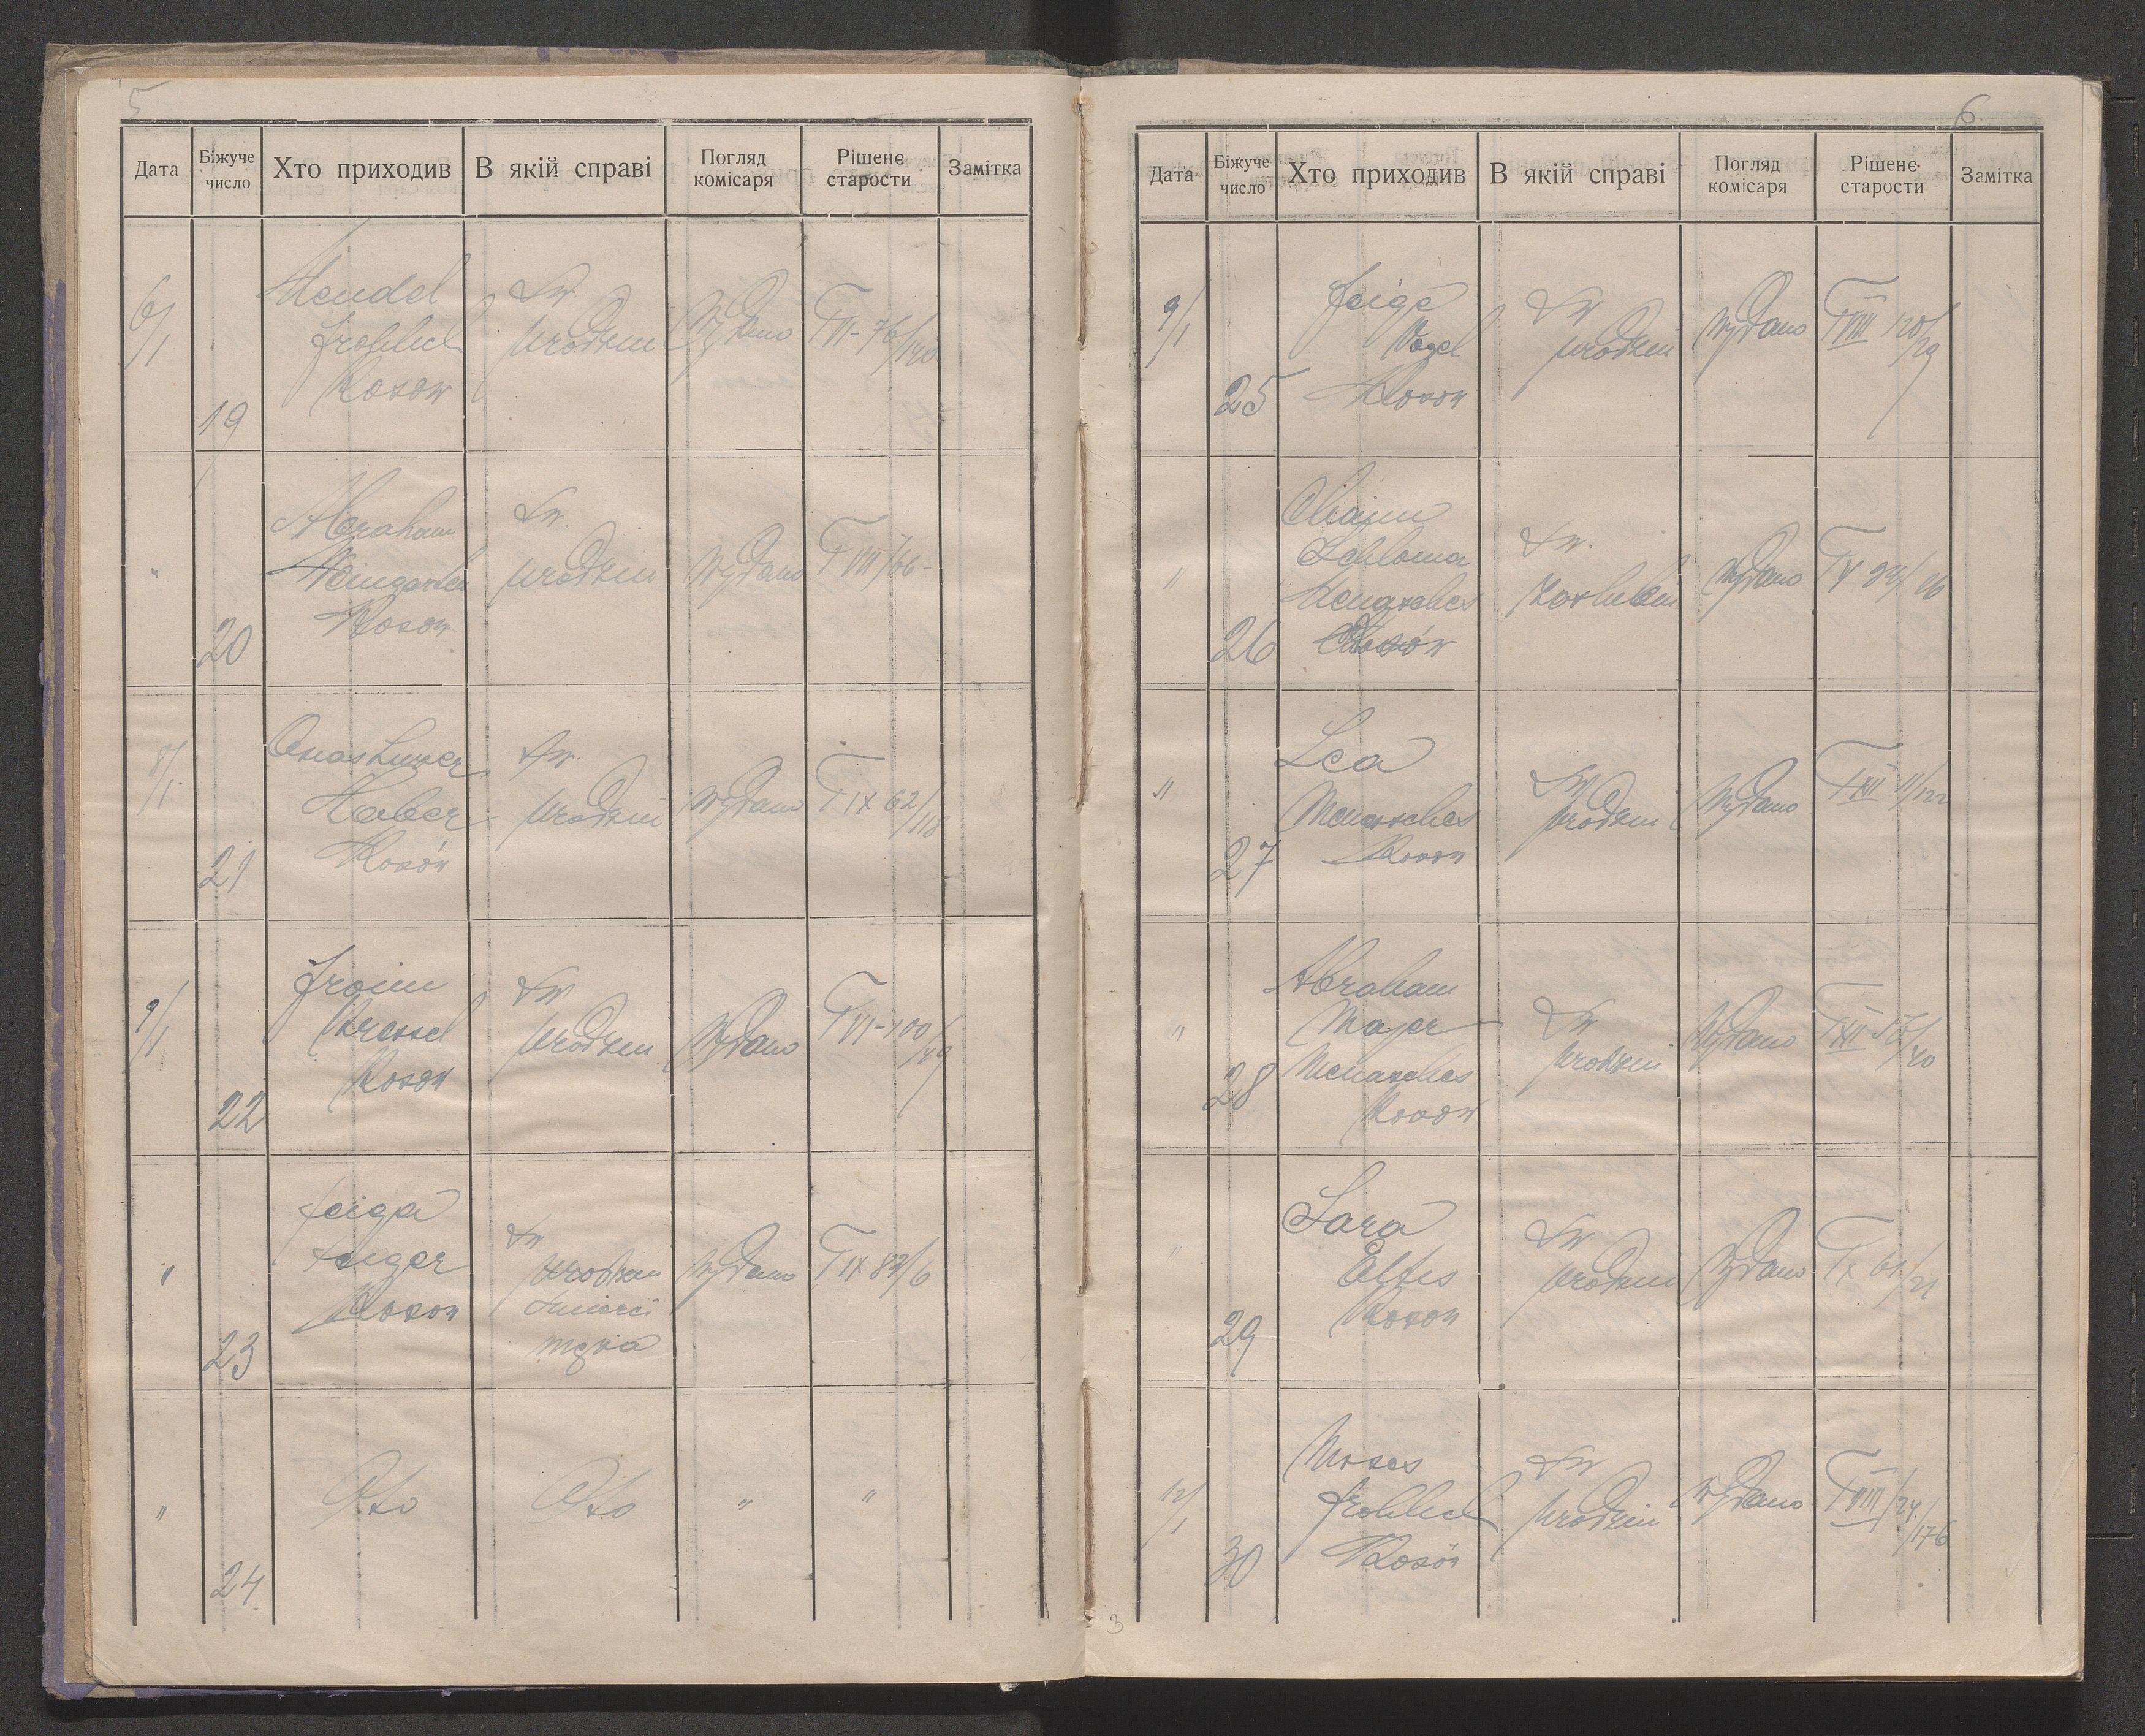 5
Дата
Біжуче число
Хто приходив
В якій справі
Погляд комісаря
Рішене старости
Замітка
6/1
19
Mendel
Frohlich
Kosow
Św.
urodzin
Wydano
T VI - 76/140
"
20
Abraham
Weingarten
Kosow
Św.
urodzin
Wydano
T VII /66-
8/1
21
Haber
Kosów
Św.
urodzin
wydano
T IX 62/118
9/1
22
Froim
Kressel
Kosow
Św
urodzin
Wydano
T VI - 100/49
"
23
Feiga
Kosow
Św
urodzin
śmierci
męża
Wydano
T IX 82/6
"
24
Dto
Dto
"
"
6
Дата
Біжуче число
Хто приходив
В якій справі
Погляд комісаря
Рішене старости
Замітка
9/1
25
Feige
Vogel
Kosow
Św
urodzin
Wydano
T VIII 120/29
"
26
Chaim
Schloma
Menasches
Kosów
Św.
Wydano
T V
"
27
Lea
Menasches
Kosow
Św
urodzin
Wydano
T XII 11/122
"
28
Abraham
Majer
Menasches
Kosow
Św
urodzin
Wydano
T XII
"
29
Sara
Kosow
Św
urodzin
Wydano
T X 61/21
12/1
30
Moses
Frohlich
Kosów
Św
urodzin
Wydano
T VIII/24/176
3